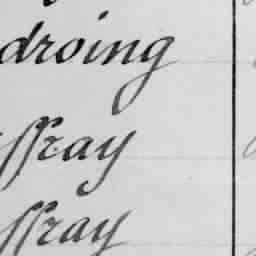 droing
ffray
ffray